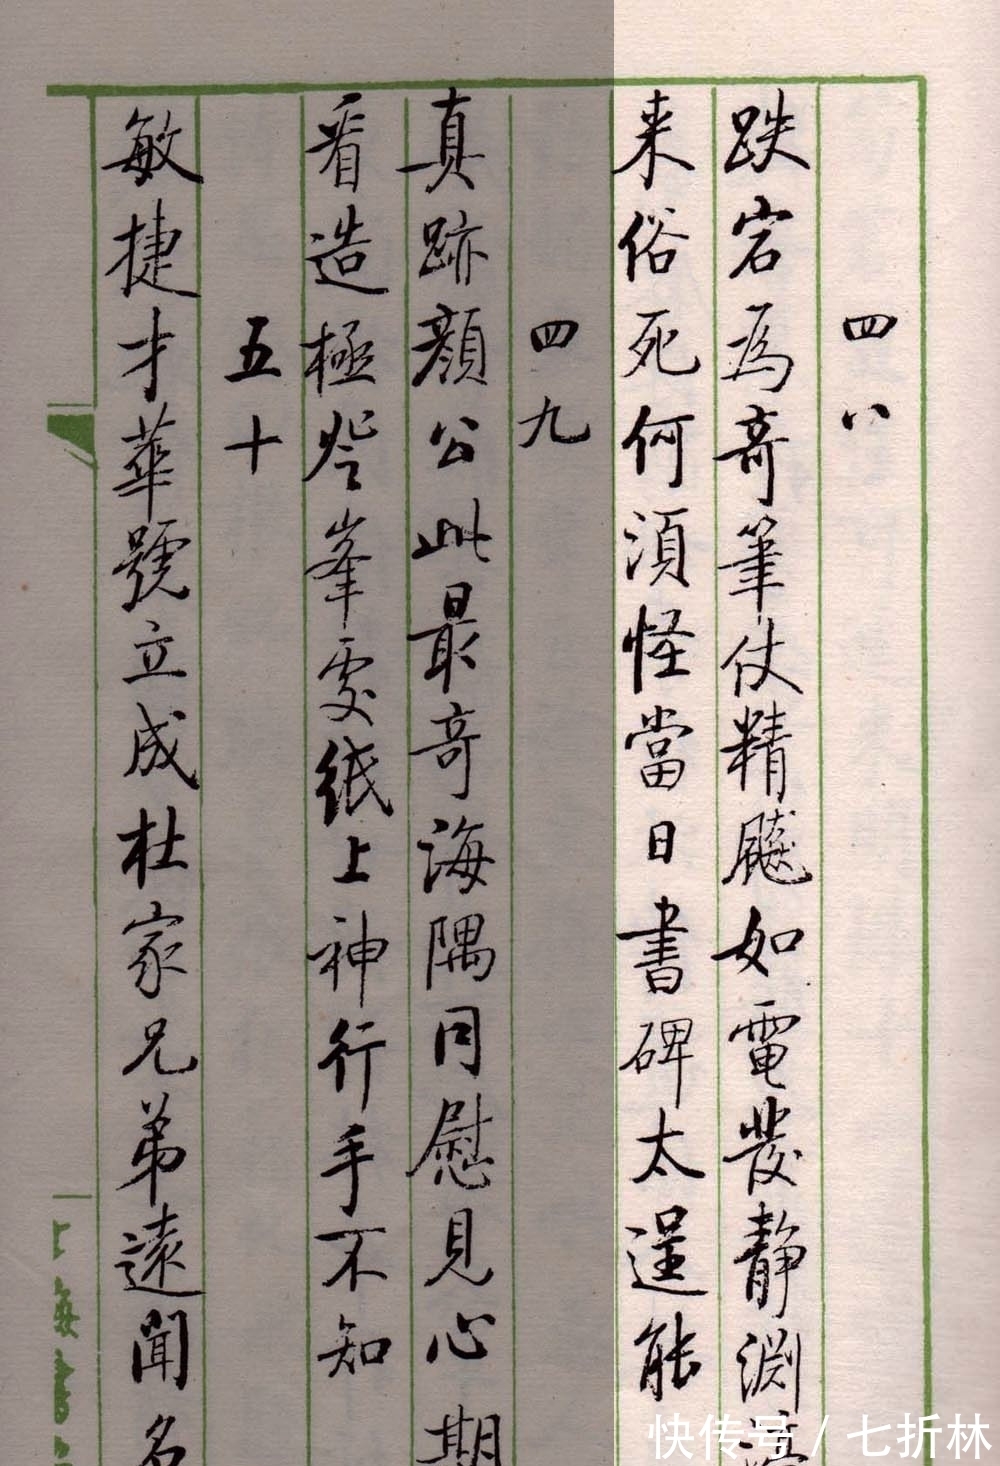 四八
跌宕為奇筆仗精飈如電發静渊
来俗死何須怪當日書碑太逞能
四九
真跡顔公此最奇海隅同慰見心期
看造極登峯處紙上神行手不知
五十
敏捷才華號立成杜家兄弟遠聞名
上海書
快传号/七折林